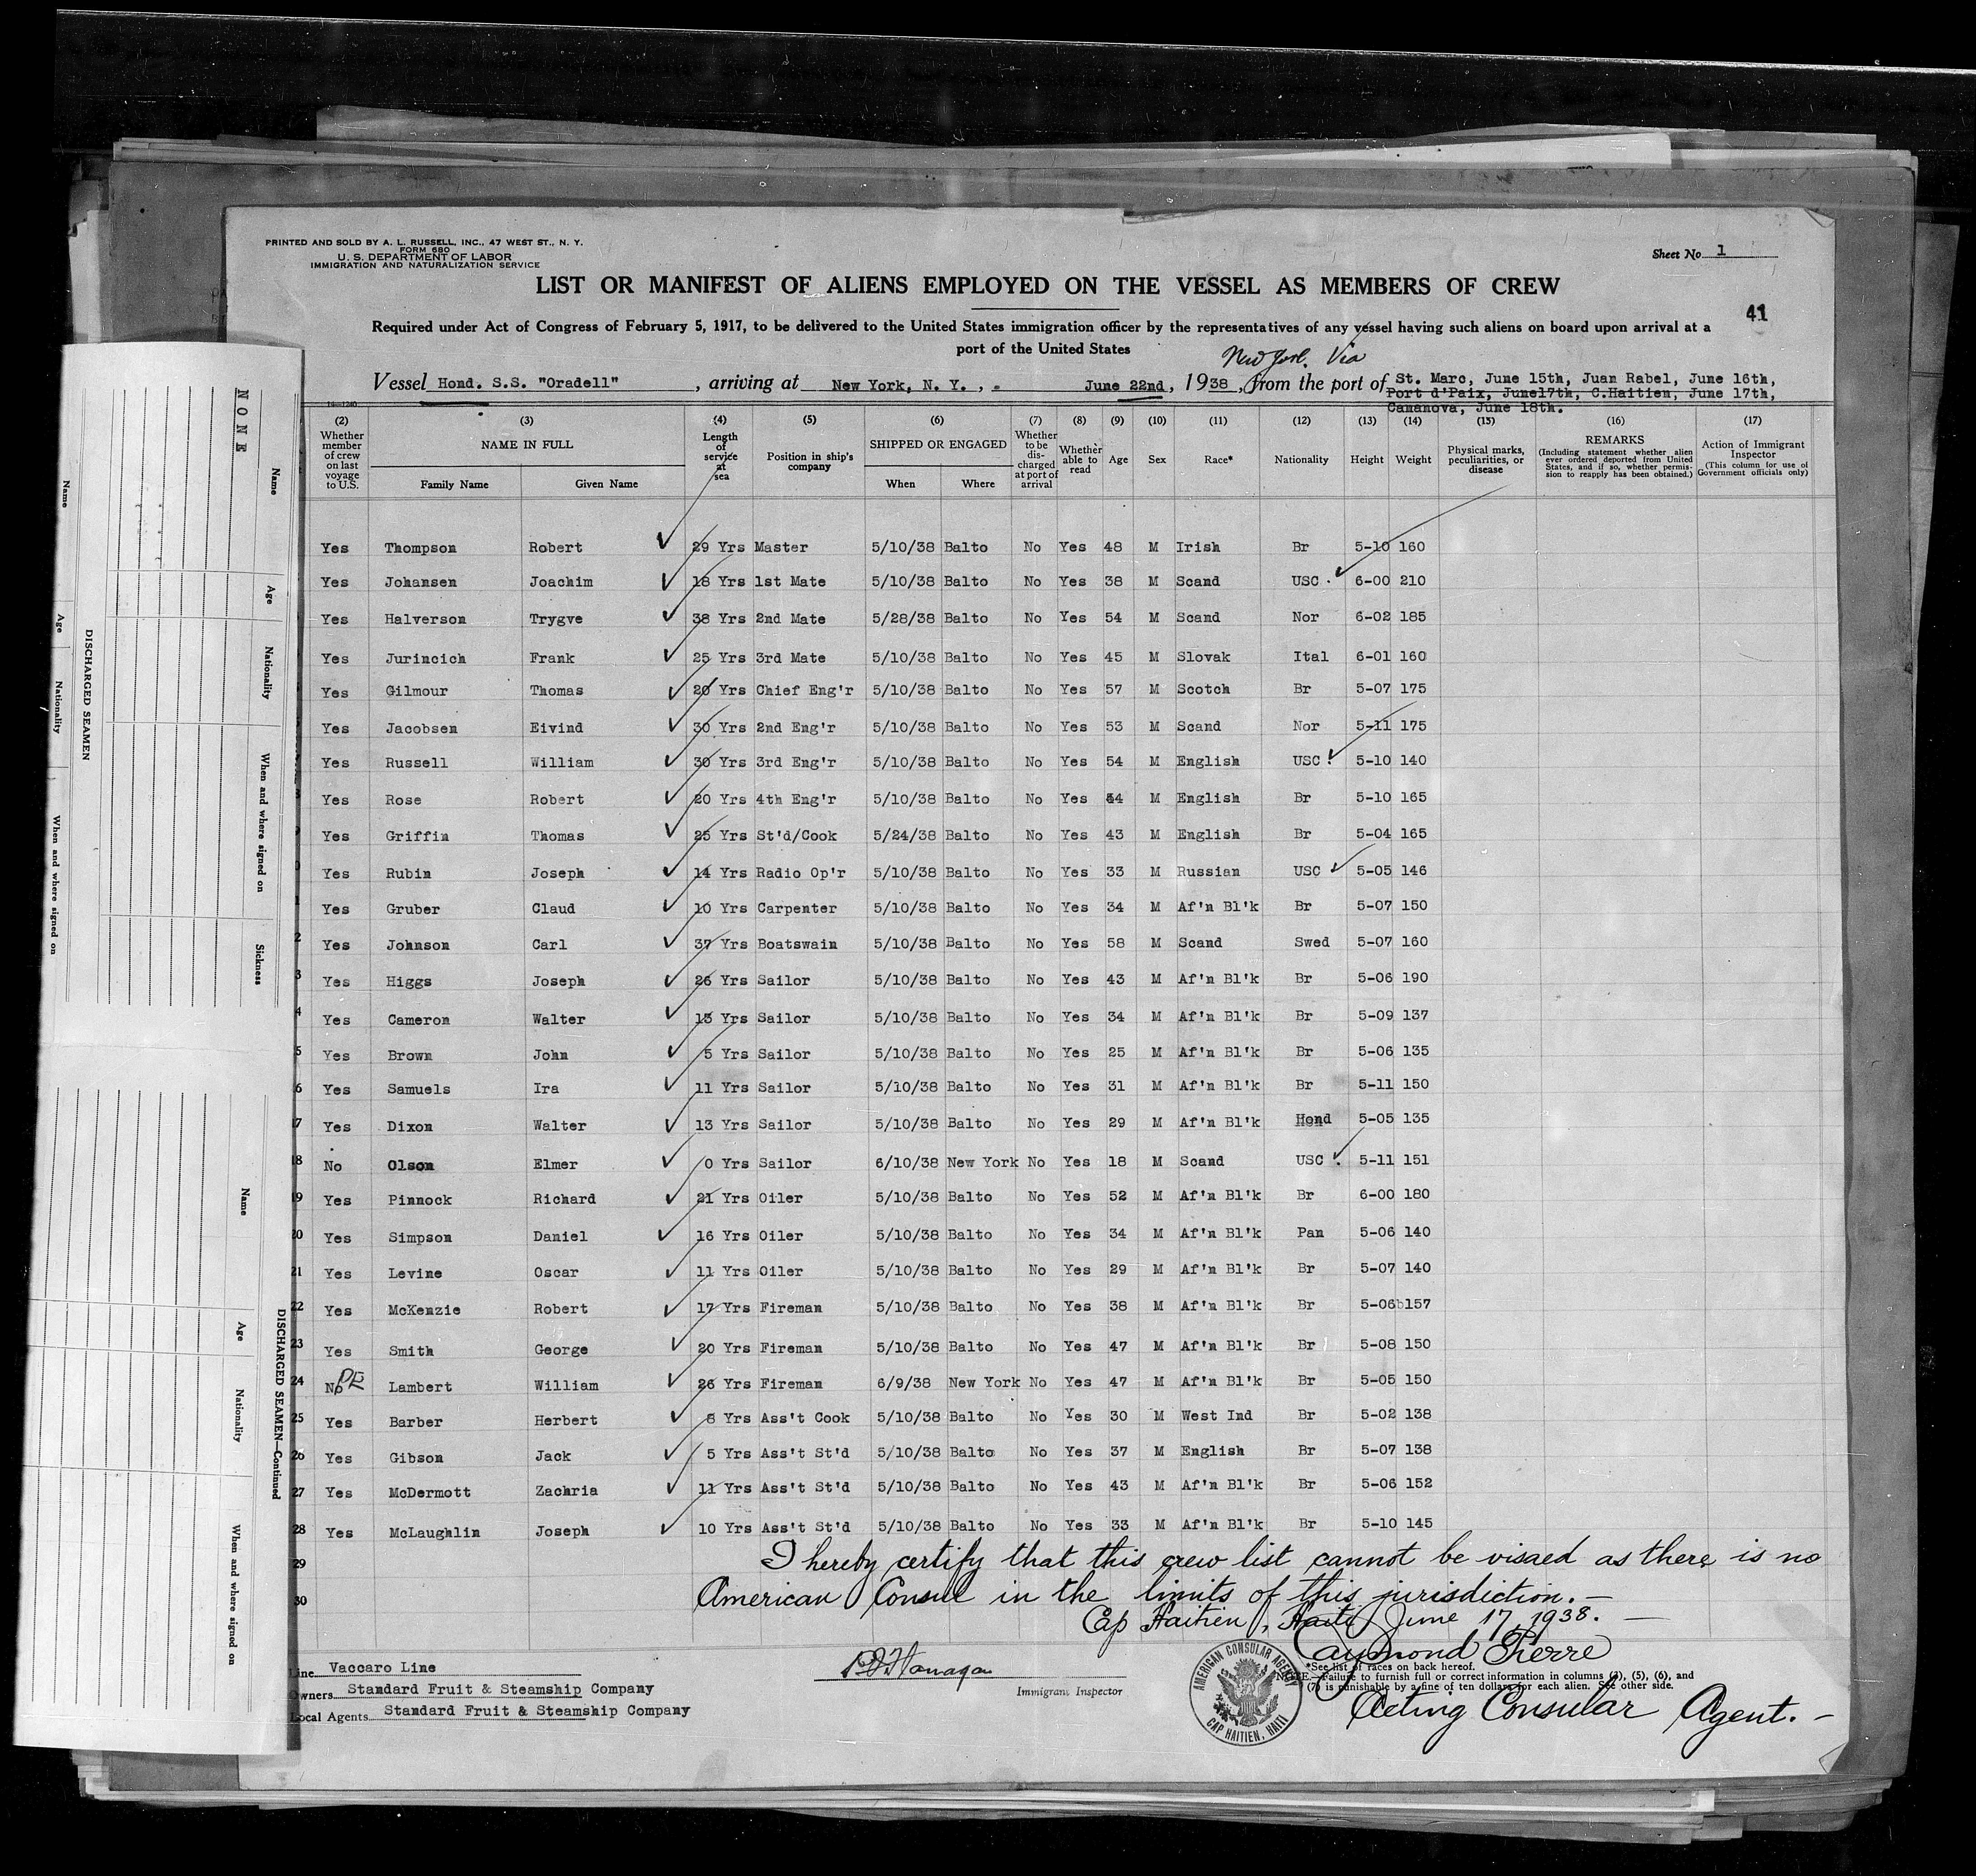 PRINTED AND SOLD BY A. L. RUSSELL, INC., 47 WEST ST., N. Y.
FORM 680
U. S. DEPARTMENT OF LABOR
IMMIGRATION AND NATURALIZATION SERVICE
Sheet No. 1
LIST OR MANIFEST OF ALIENS EMPLOYED ON THE VESSEL AS MEMBERS OF CREW
41
Required under Act of Congress of February 5, 1917, to be delivered to the United States immigration officer by the representatives of any vessel having such aliens on board upon arrival at a
port of the United States
New York. Via
Vessel Hond. S.S. "Oradell", arriving at New York, N. Y., June 22nd, 1938, from the port of St. Marc, June 15th, Juan Rabel, June 16th,
Port d'Paix, June17th, C.Haitien, June 17th,
Camanova, June 18th.
(2) Whether member of crew on last voyage to U.S.
(3) NAME IN FULL Family Name Given Name
(4) Length of service at sea
(5) Position in ship's company
(6) SHIPPED OR ENGAGED When Where
(7) Whether to be discharged at port of arrival
(8) Whether able to read
(9) Age
(10) Sex
(11) Race*
(12) Nationality
(13) Height
(14) Weight
(15) Physical marks, peculiarities, or disease
(16) REMARKS (Including statement whether alien ever ordered deported from United States, and if so, whether permission to reapply has been obtained.)
(17) Action of Immigrant Inspector (This column for use of Government officials only)
Yes Thompson Robert 29 Yrs Master 5/10/38 Balto No Yes 48 M Irish Br 5-10 160
Yes Johansen Joachim 18 Yrs 1st Mate 5/10/38 Balto No Yes 38 M Scand USC 6-00 210
Yes Halverson Trygve 38 Yrs 2nd Mate 5/28/38 Balto No Yes 54 M Scand Nor 6-02 185
Yes Jurincich Frank 25 Yrs 3rd Mate 5/10/38 Balto No Yes 45 M Slovak Ital 6-01 160
Yes Gilmour Thomas 20 Yrs Chief Eng'r 5/10/38 Balto No Yes 57 M Scotch Br 5-07 175
Yes Jacobsen Eivind 30 Yrs 2nd Eng'r 5/10/38 Balto No Yes 53 M Scand Nor 5-11 175
Yes Russell William 30 Yrs 3rd Eng'r 5/10/38 Balto No Yes 54 M English USC 5-10 140
Yes Rose Robert 20 Yrs 4th Eng'r 5/10/38 Balto No Yes 44 M English Br 5-10 165
Yes Griffin Thomas 25 Yrs St'd/Cook 5/24/38 Balto No Yes 43 M English Br 5-04 165
Yes Rubin Joseph 14 Yrs Radio Op'r 5/10/38 Balto No Yes 33 M Russian USC 5-05 146
Yes Gruber Claud 10 Yrs Carpenter 5/10/38 Balto No Yes 34 M Af'n Bl'k Br 5-07 150
2 Yes Johnson Carl 37 Yrs Boatswain 5/10/38 Balto No Yes 58 M Scand Swed 5-07 160
3 Yes Higgs Joseph 26 Yrs Sailor 5/10/38 Balto No Yes 43 M Af'n Bl'k Br 5-06 190
4 Yes Cameron Walter 15 Yrs Sailor 5/10/38 Balto No Yes 34 M Af'n Bl'k Br 5-09 137
5 Yes Brown John 5 Yrs Sailor 5/10/38 Balto No Yes 25 M Af'n Bl'k Br 5-06 135
6 Yes Samuels Ira 11 Yrs Sailor 5/10/38 Balto No Yes 31 M Af'n Bl'k Br 5-11 150
17 Yes Dixon Walter 13 Yrs Sailor 5/10/38 Balto No Yes 29 M Af'n Bl'k Hond 5-05 135
18 No Olson Elmer 0 Yrs Sailor 6/10/38 New York No Yes 18 M Scand USC 5-11 151
19 Yes Pinnock Richard 21 Yrs Oiler 5/10/38 Balto No Yes 52 M Af'n Bl'k Br 6-00 180
20 Yes Simpson Daniel 16 Yrs Oiler 5/10/38 Balto No Yes 34 M Af'n Bl'k Pan 5-06 140
21 Yes Levine Oscar 11 Yrs Oiler 5/10/38 Balto No Yes 29 M Af'n Bl'k Br 5-07 140
22 Yes McKenzie Robert 17 Yrs Fireman 5/10/38 Balto No Yes 38 M Af'n Bl'k Br 5-06 157
23 Yes Smith George 20 Yrs Fireman 5/10/38 Balto No Yes 47 M Af'n Bl'k Br 5-08 150
24 No Lambert William 26 Yrs Fireman 6/9/38 New York No Yes 47 M Af'n Bl'k Br 5-05 150
25 Yes Barber Herbert Yrs Ass't Cook 5/10/38 Balto No Yes 30 M West Ind Br 5-02 138
26 Yes Gibson Jack 5 Yrs Ass't St'd 5/10/38 Balto No Yes 37 M English Br 5-07 138
27 Yes McDermott Zachria 11 Yrs Ass't St'd 5/10/38 Balto No Yes 43 M Af'n Bl'k Br 5-06 152
28 Yes McLaughlin Joseph 10 Yrs Ass't St'd 5/10/38 Balto No Yes 33 M Af'n Bl'k Br 5-10 145
29
30
I hereby certify that this crew list cannot be visaed as there is no
American Consul in the limits of this jurisdiction.—
Cap Haitien, Haiti June 17, 1938.—
Raymond Pierre
Acting Consular Agent.—
Line Vaccaro Line
Owners Standard Fruit & Steamship Company
Local Agents Standard Fruit & Steamship Company
Immigrant Inspector
AMERICAN CONSULAR AGENCY
CAP HAITIEN, HAITI
*See list of races on back hereof.
NOTE.—Failure to furnish full or correct information in columns (3), (5), (6), and
(7) is punishable by a fine of ten dollars for each alien. See other side.
NONE
DISCHARGED SEAMEN
Name
Age
Nationality
When and where signed on
Sickness
Name
Age
Nationality
When and where signed on
DISCHARGED SEAMEN—Continued
Name
Age
Nationality
When and where signed on